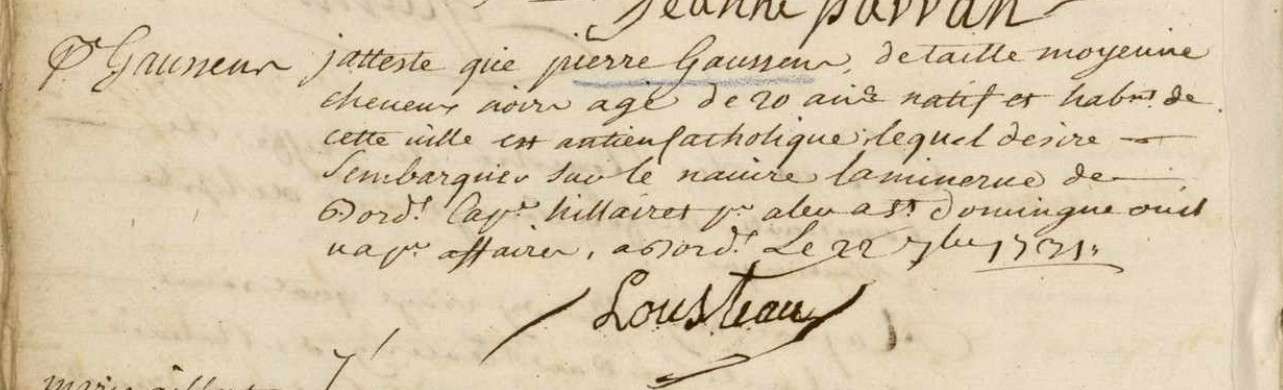 Jeanne parran
Pre Gausseur jatteste que pierre Gausseur, de taille moyenne
cheveux noirs agé de 20 ans natif et habnt de
cette ville est antien Catholique lequel desire
Sembarquer sur le navire laminerve de
Bordx Capne hillairet pr aler a St domingue ou il
va pr affaires, a Bordx Le 22 7bre 1731
Lousteau